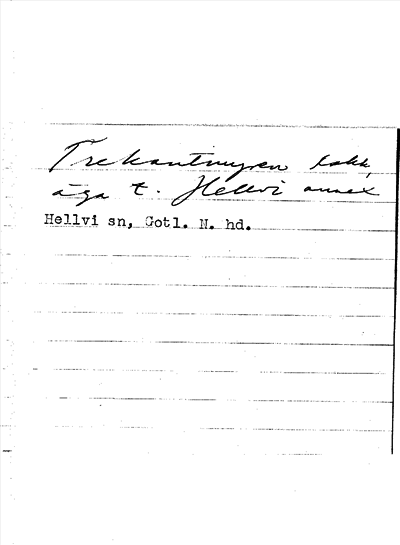 Trekantmyren lokk,
äga t. Hellvi annex
Hellvi sn, Gotl. N. hd.